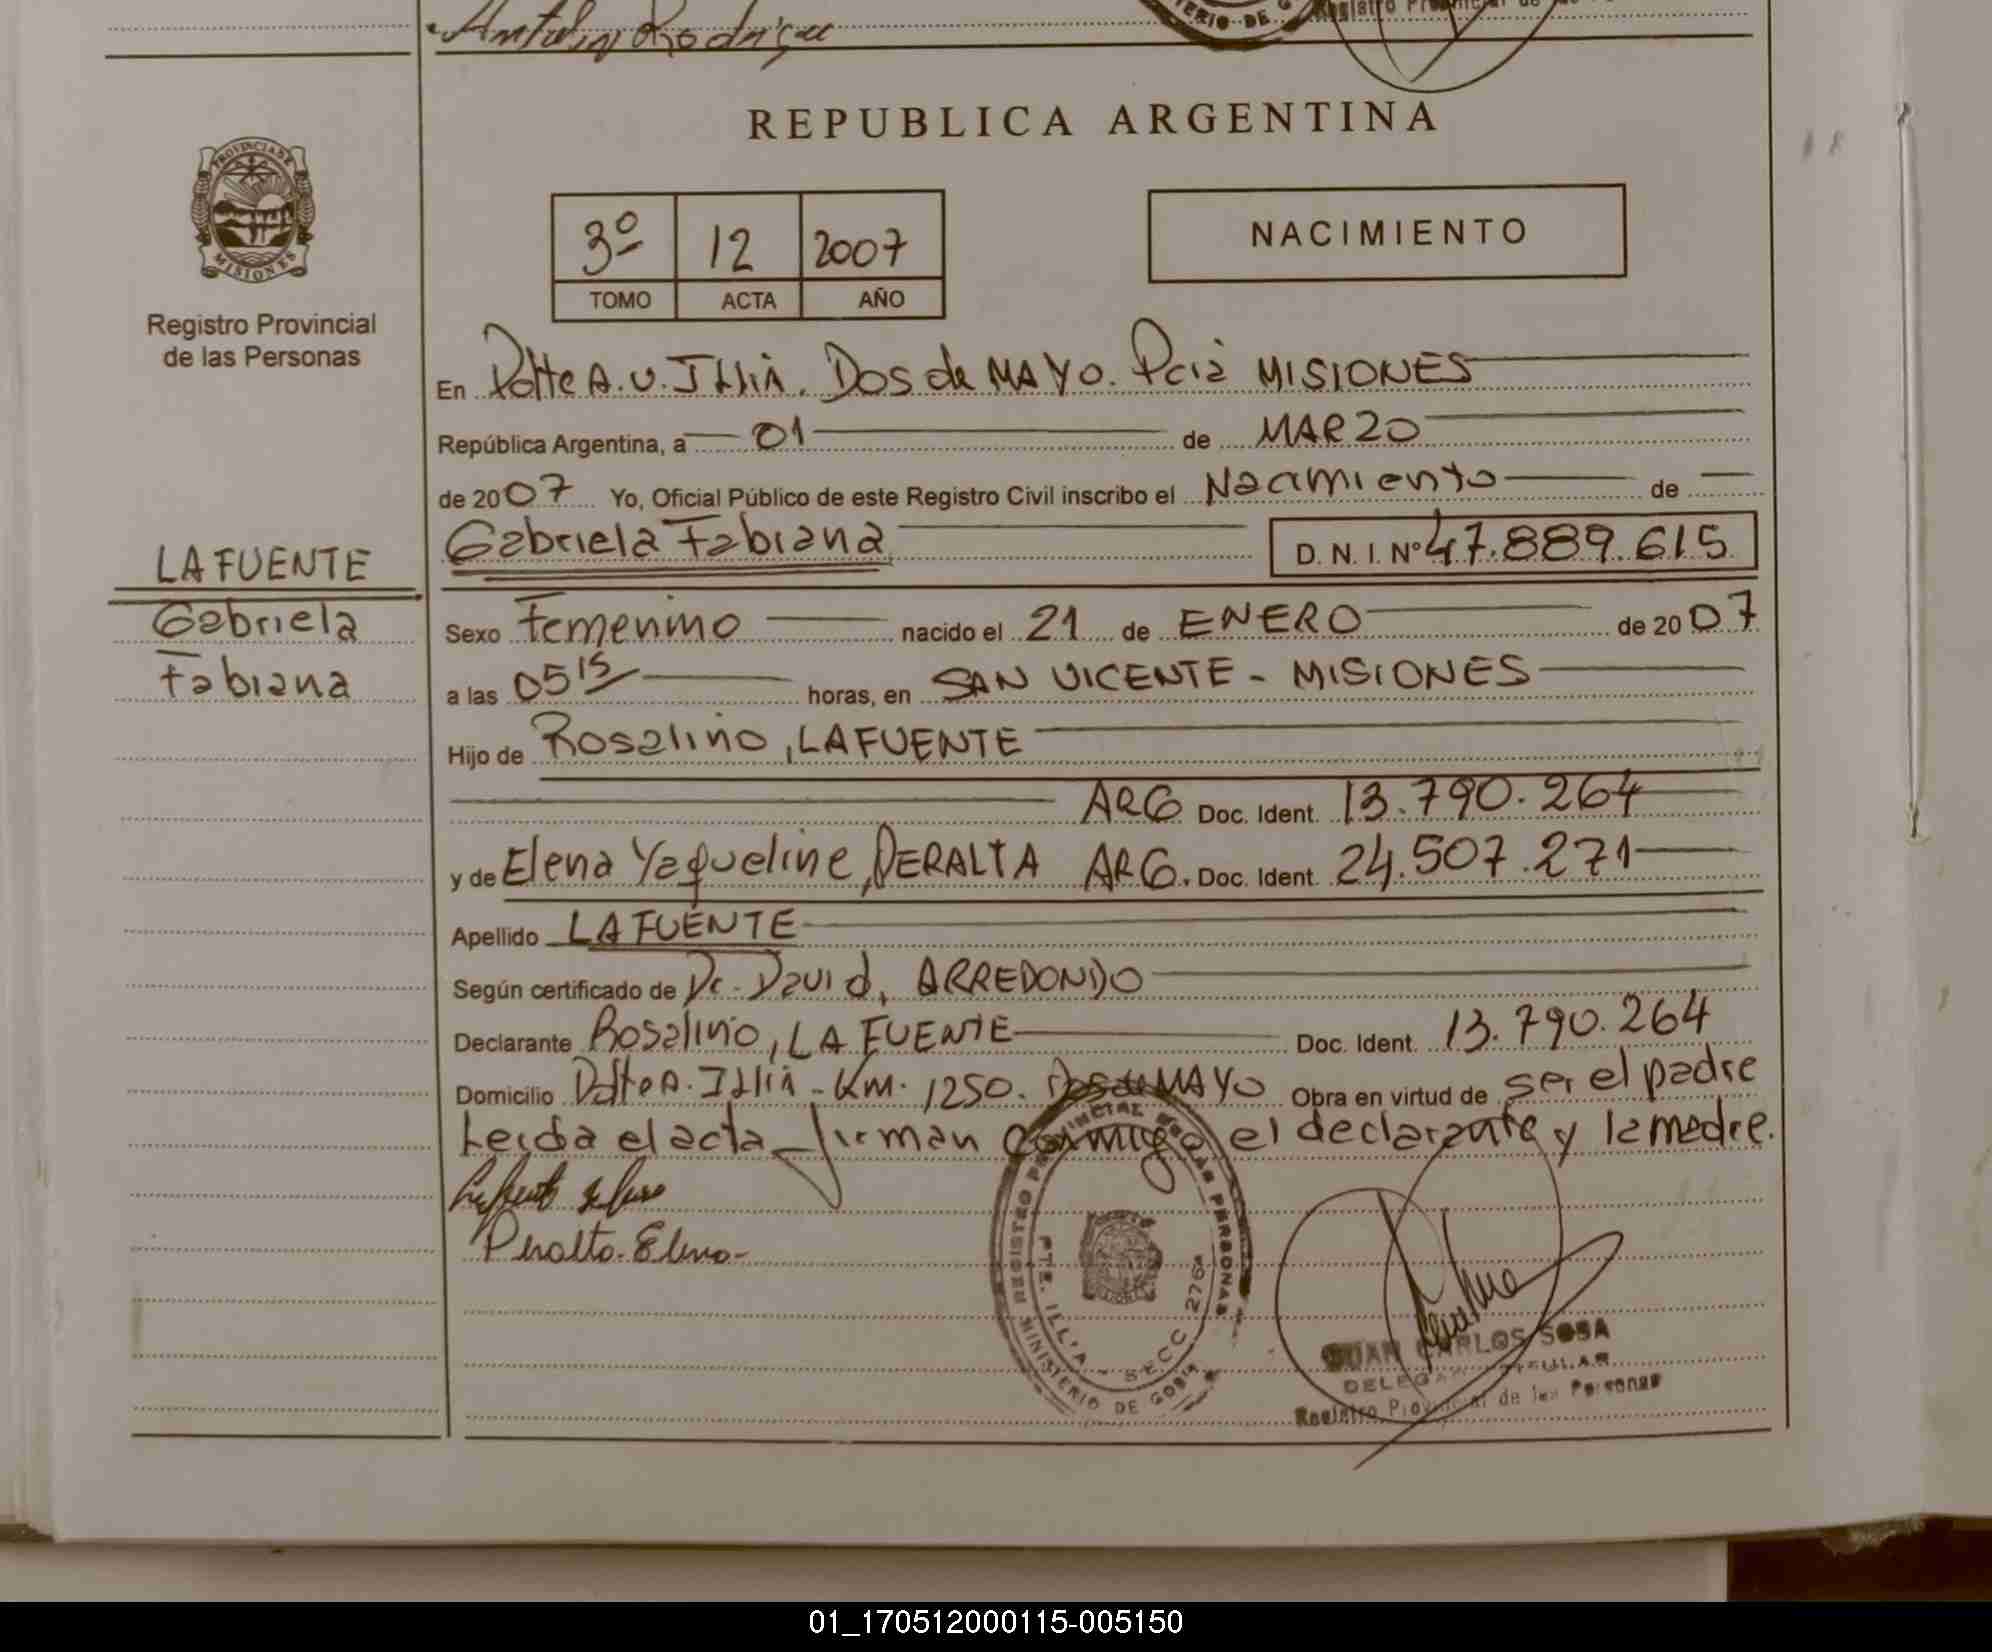 Antolin Rodrigu
TERIO DE G
Registro Provincial de
REPUBLICA ARGENTINA
PROVINCIA DE
MISIONES
Registro Provincial
de las Personas
3º 12 2007
TOMO ACTA AÑO
NACIMIENTO
En Pdte A. U. Illia. Dos de MAYO. Pcia MISIONES
República Argentina, a 01 de MARZO
de 2007 Yo, Oficial Público de este Registro Civil inscribo el Nacimiento de
Gabriela Fabiana D. N. I. Nº 47.889.615
LAFUENTE
Gabriela
Fabiana
Sexo Femenino nacido el 21 de ENERO de 2007
a las 05 15 horas, en SAN VICENTE - MISIONES
Hijo de Rosalino, LAFUENTE
ARG Doc. Ident. 13.790.264
y de Elena Yaqueline, PERALTA ARG. Doc. Ident. 24.507.271
Apellido LAFUENTE
Según certificado de Dr. David, ARREDONDO
Declarante Rosalino, LA FUENTE Doc. Ident. 13.790.264
Domicilio Pdte A. Illia - Km. 1250. Dos de MAYO Obra en virtud de ser el padre
Leida el acta firman conmigo el declarante y la madre.
Peralta Elena
REGISTRO PROVINCIAL DE LAS PERSONAS
PTE. ILLIA - SECC 276
MINISTERIO DE GOB
JUAN CARLOS SOSA
DELEGADO TITULAR
Registro Provincial de las Personas
01_170512000115-005150